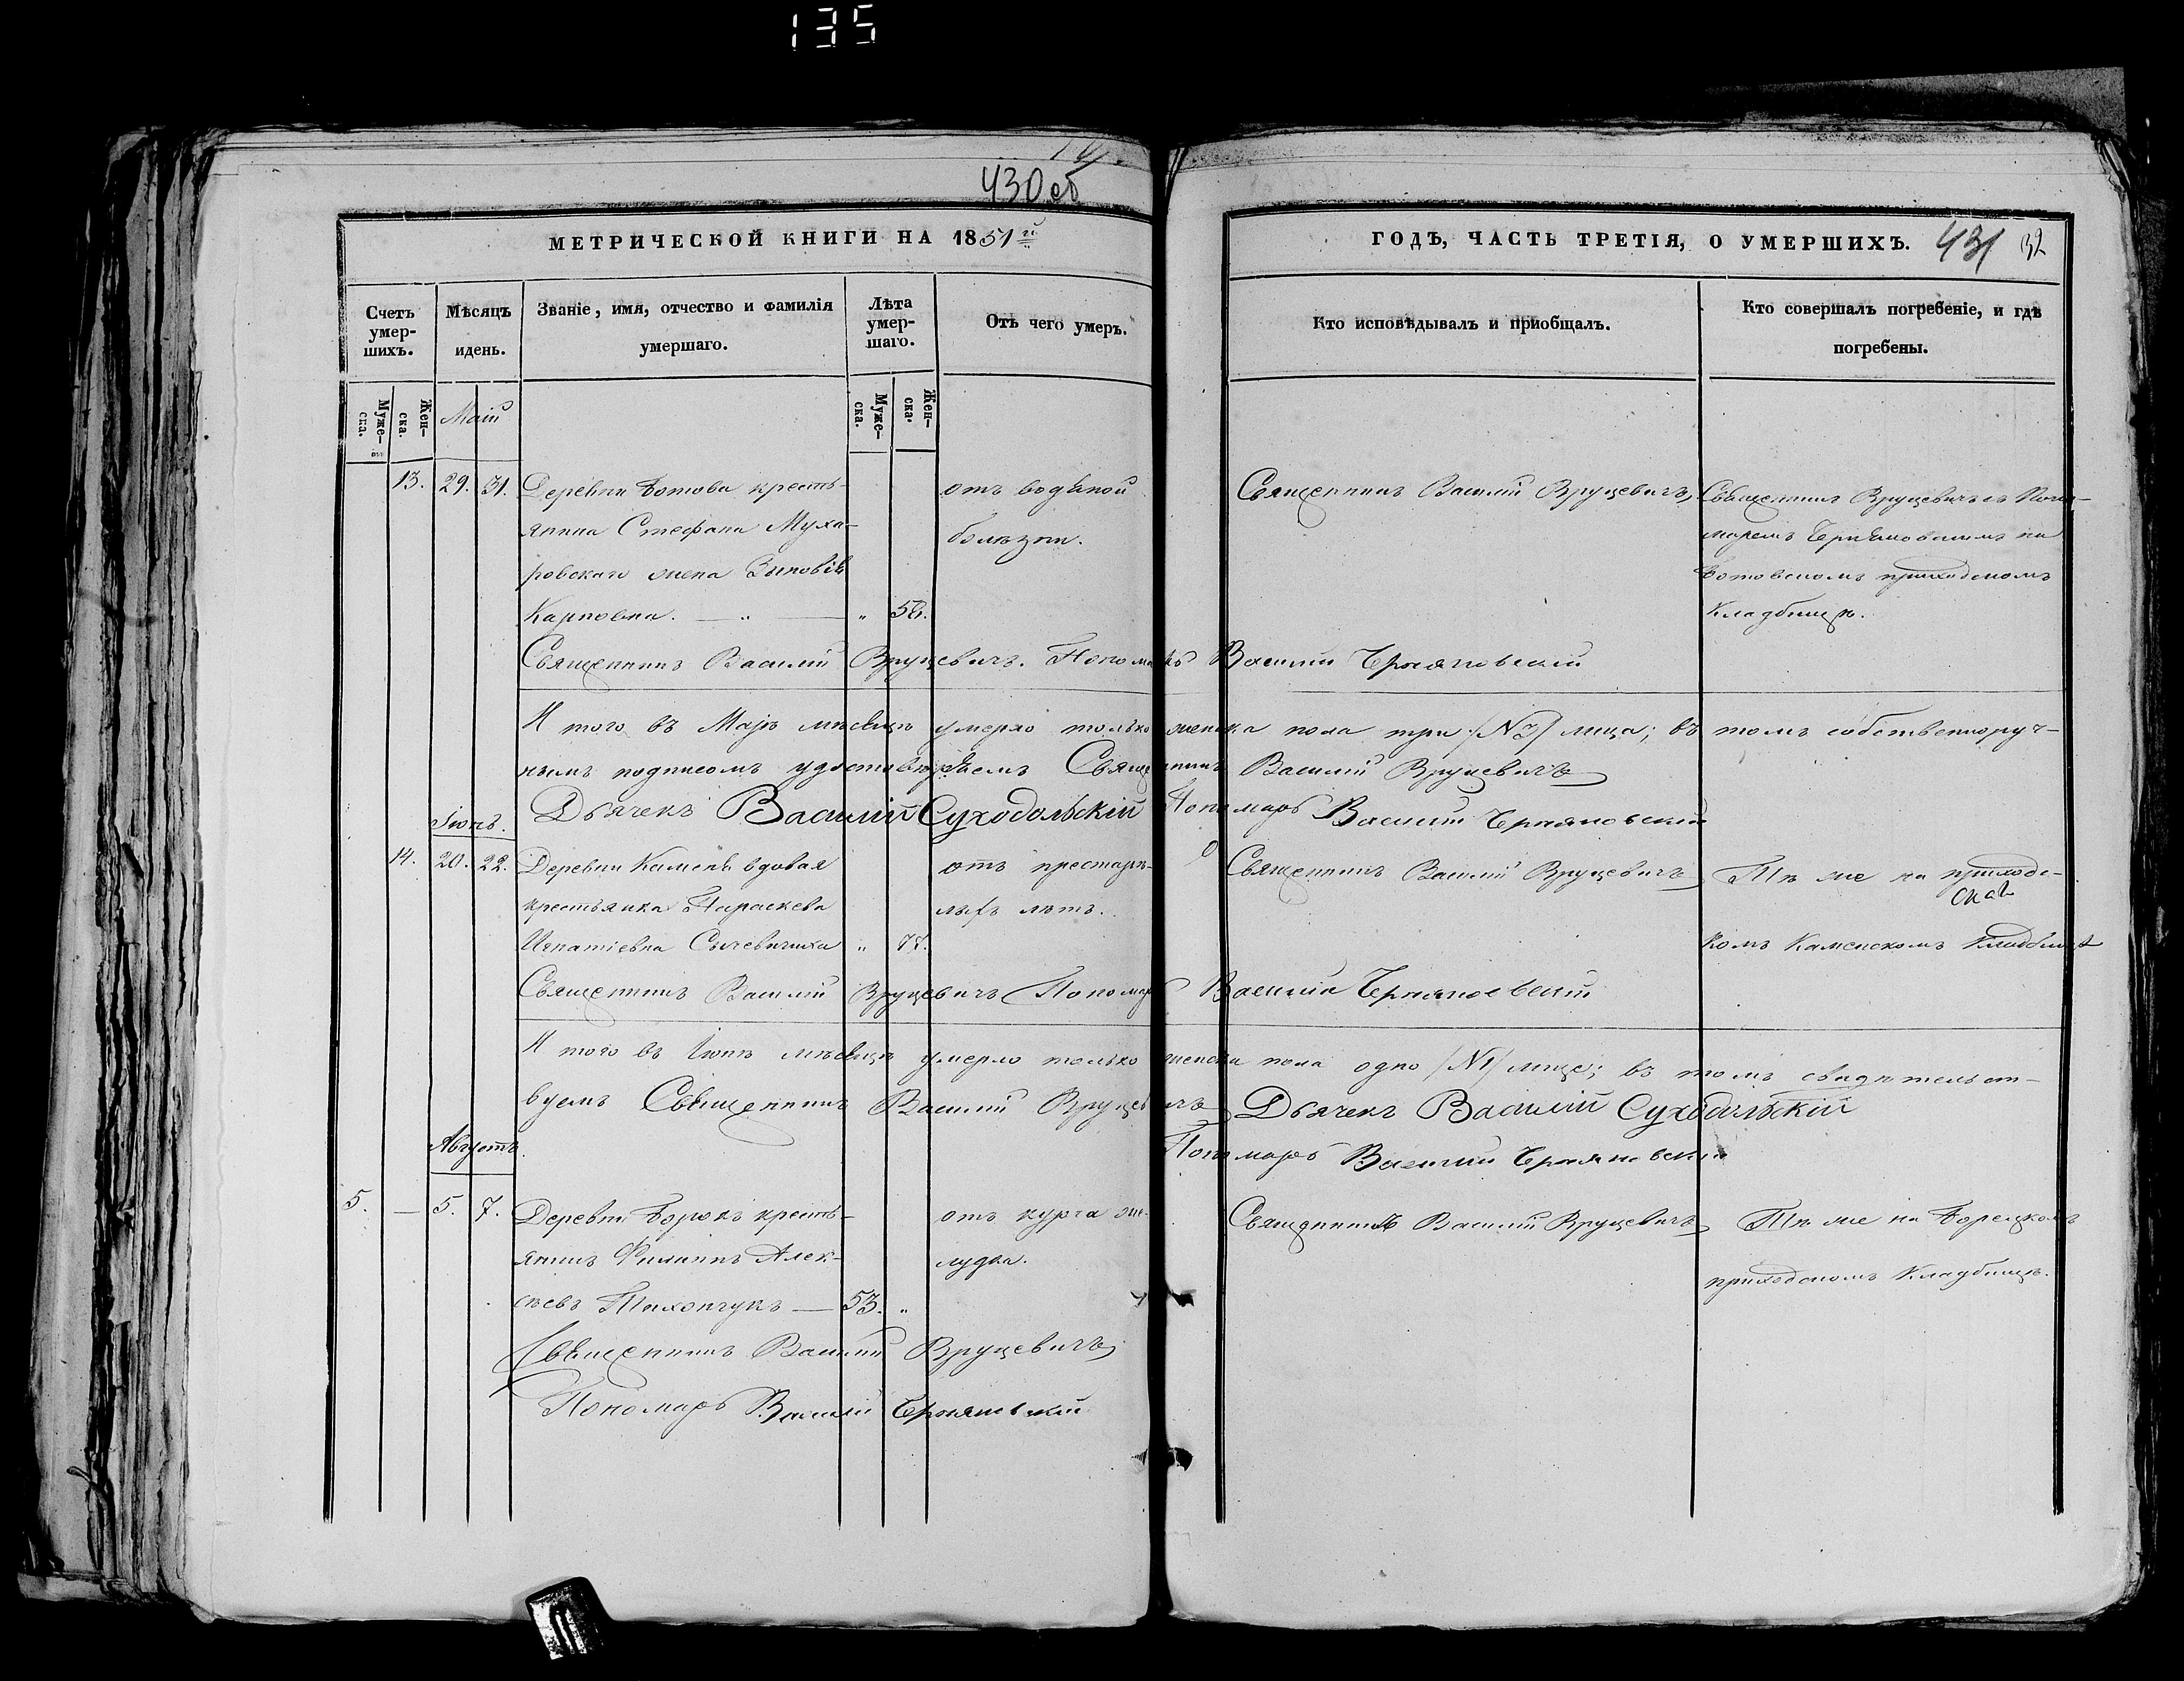 135
430об
МЕТРИЧЕСКОЙ КНИГИ НА 1851й
ГОДЪ, ЧАСТЬ ТРЕТІЯ, О УМЕРШИХЪ. 431 32
Счетъ умер-шихъ.
Мѣсяцъ идень.
Званіе, имя, отчество и фамилія умершаго.
Лѣта умер-шаго.
Отъ чего умеръ.
Кто исповѣдывалъ и приобщалъ.
Кто совершалъ погребеніе, и гдѣ погребены.
Муже-ска.
Жен-ска.
Муже-ска.
Жен-ска.
Маій
13. 29. 31. Деревни Ботова кресть-
янина Стефана Муха-
ровскаго жена Зиновія
Карповна. — „ — „ 56.
отъ водяной
болѣзни.
Священникъ Василій Вруцевичъ
Священникъ Вруцевичъ съ Поно-
маремъ на
Ботовскомъ приходскомъ
Кладбищѣ.
Священникъ Василій Вруцевичъ. Пономарь Василій
И того въ Маѣ мѣсяцѣ умерло только женска пола три /№3/ лица; въ томъ собственноруч-
нымъ подписомъ удостовѣряемъ Священникъ Василій Вруцевичъ
Дьячекъ Василій Суходольскій Пономарь Василій
Іюнь.
14. 20. 22. Деревни Камень вдовая
крестьянка Параскева
Игнатіевна Сычевичиха „ 77.
отъ престарѣ-
лыхъ лѣтъ.
Священникъ Василій Вруцевичъ
Тѣ же на приходс-
комъ Каменскомъ Кладбищѣ
Священникъ Василій Вруцевичъ Пономарь Василій
И того въ Іюнѣ мѣсяцѣ умерло только женска пола одно /№1/ лице; въ томъ свидѣтельст-
вуемъ Священникъ Василій Вруцевичъ Дьячекъ Василій Суходольскій
Пономарь Василій
Августъ.
5. — 5. 7. Деревни Борокъ кресть-
янинъ Филиппъ Алек-
сѣевъ Тихончукъ — 53. „
отъ курча же-
лудка.
Священникъ Василій Вруцевичъ
Тѣ же на Борецкомъ
приходскомъ Кладбищѣ.
Священникъ Василій Вруцевичъ
Пономарь Василій